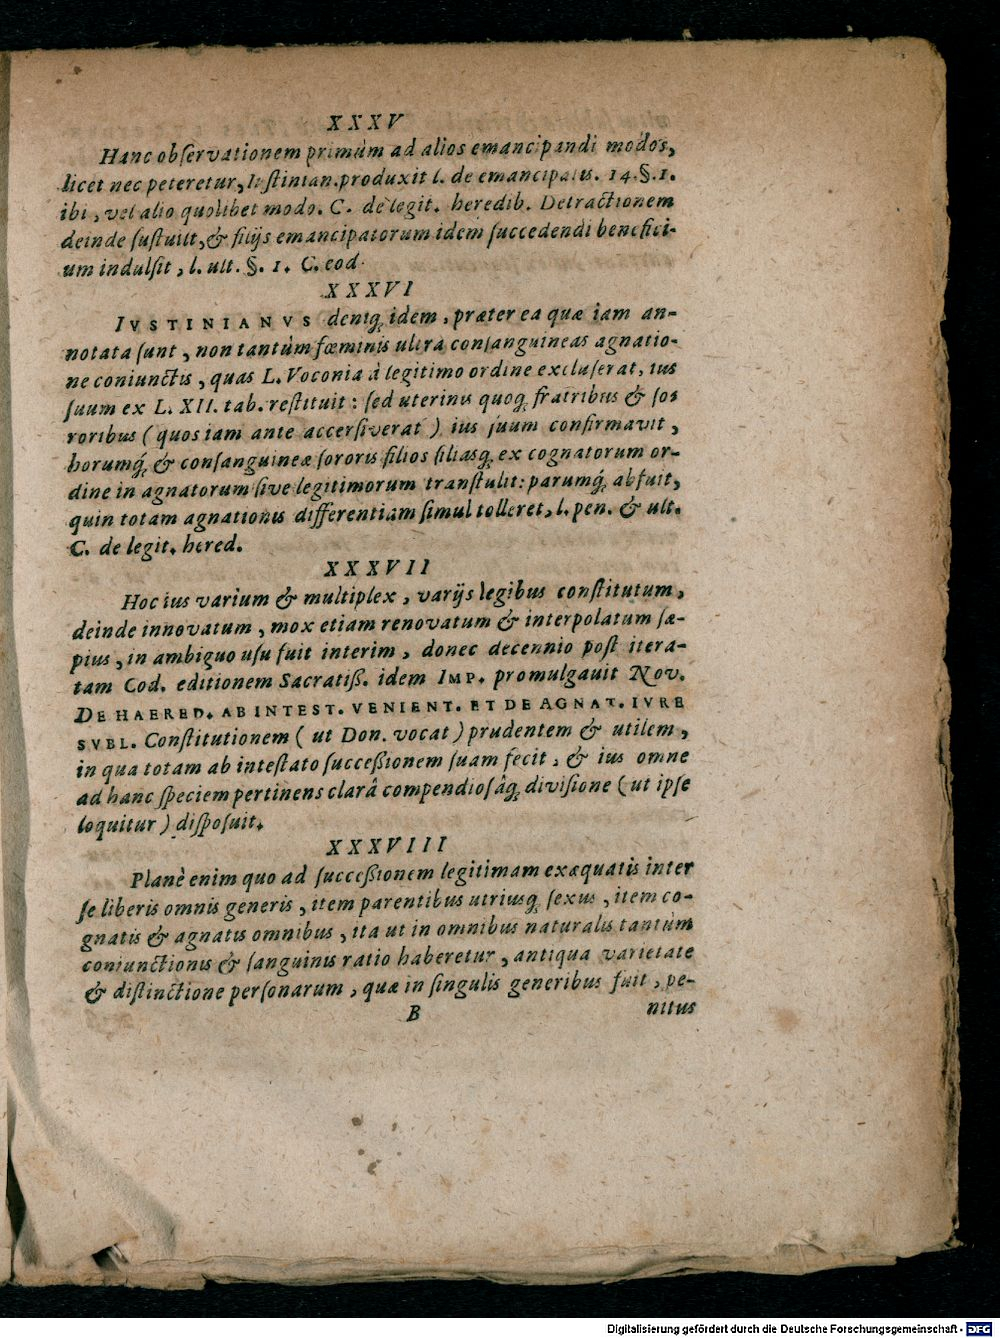 XXXV
Hanc observationem primùm ad alios emancipandi modos,
licet nec peteretur, Iustinian. produxit l. de emancipatis. 14. §. 1.
ibi, vel alio quolibet modo. C. de legit. heredib. Detractionem
deinde sustulit, & filijs emancipatorum idem succedendi benefici-
um indulsit, l. ult. §. 1. C. eod.
XXXVI
IVSTINIANVS deniq́ idem, præter ea quæ iam an-
notata sunt, non tantùm fœminis ultra consanguineas agnatio-
ne coniunctis, quas L. Voconia à legitimo ordine excluserat, ius
suum ex L. XII. tab. restituit: sed uterinis quoq́ fratribus & so-
roribus (quos iam ante accersiverat) ius suum confirmavit,
horumq́ & consanguineæ sororis filios filiasq́ ex cognatorum or-
dine in agnatorum sive legitimorum transtulit: parumq́ abfuit,
quin totam agnationis differentiam simul tolleret, l. pen. & ult.
C. de legit. hered.
XXXVII
Hoc ius varium & multiplex, varijs legibus constitutum,
deinde innovatum, mox etiam renovatum & interpolatum sæ-
pius, in ambiguo usu fuit interim, donec decennio post itera-
tam Cod. editionem Sacratiß. idem IMP. promulgauit Nov.
DE HAERED. AB INTEST. VENIENT. ET DE AGNAT. IVRE
SVBL. Constitutionem (ut Don. vocat) prudentem & utilem,
in qua totam ab intestato succeßionem suam fecit, & ius omne
ad hanc speciem pertinens clarâ compendiosâq́ divisione (ut ipse
loquitur) disposuit.
XXXVIII
Planè enim quo ad succeßionem legitimam exæquatis inter
se liberis omnis generis, item parentibus utriusq́ sexus, item co-
gnatis & agnatis omnibus, ita ut in omnibus naturalis tantùm
coniunctionis & sanguinis ratio haberetur, antiqua varietate
& distinctione personarum, quæ in singulis generibus fuit, pe-
B nitus
Digitalisierung gefördert durch die Deutsche Forschungsgemeinschaft - DFG